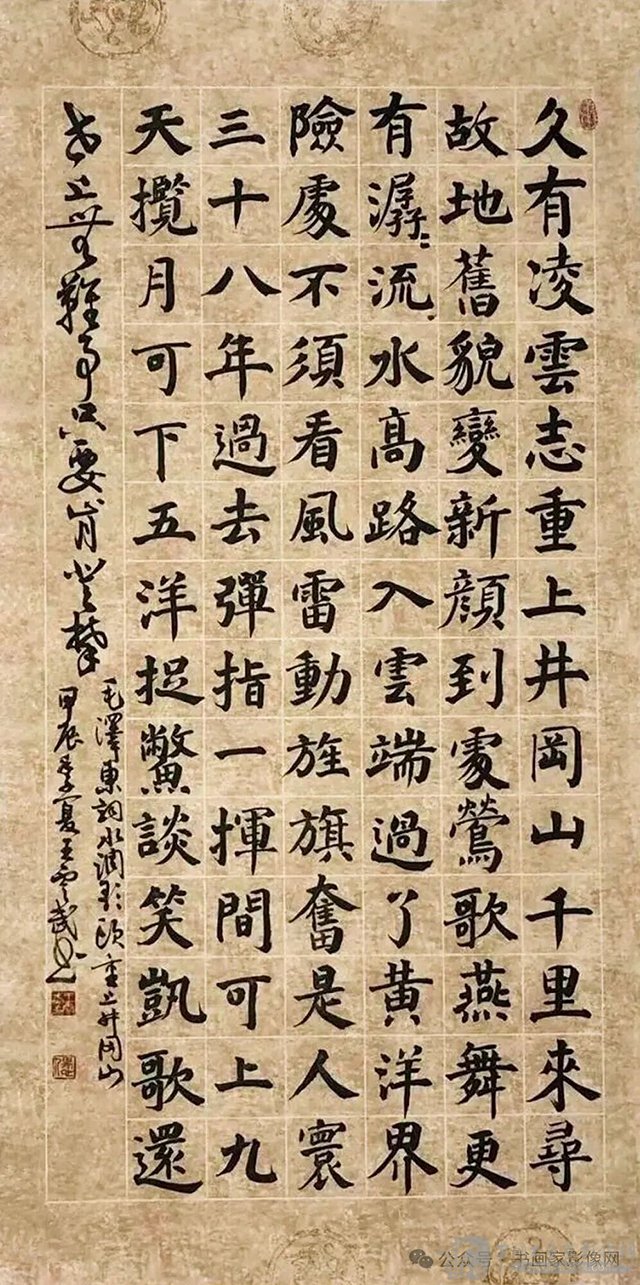 久有凌雲志重上井岡山千里來尋
故地舊貌變新顏到處鶯歌燕舞更
有潺〻流水高路入雲端過了黃洋界
險處不須看風雷動旌旗奮是人寰
三十八年過去彈指一揮間可上九
天攬月可下五洋捉鱉談笑凱歌還
世上無難事只要肯登攀
毛澤東詞水調歌頭重上井岡山
甲辰季夏王雲武書
公众号 · 书画家影像网